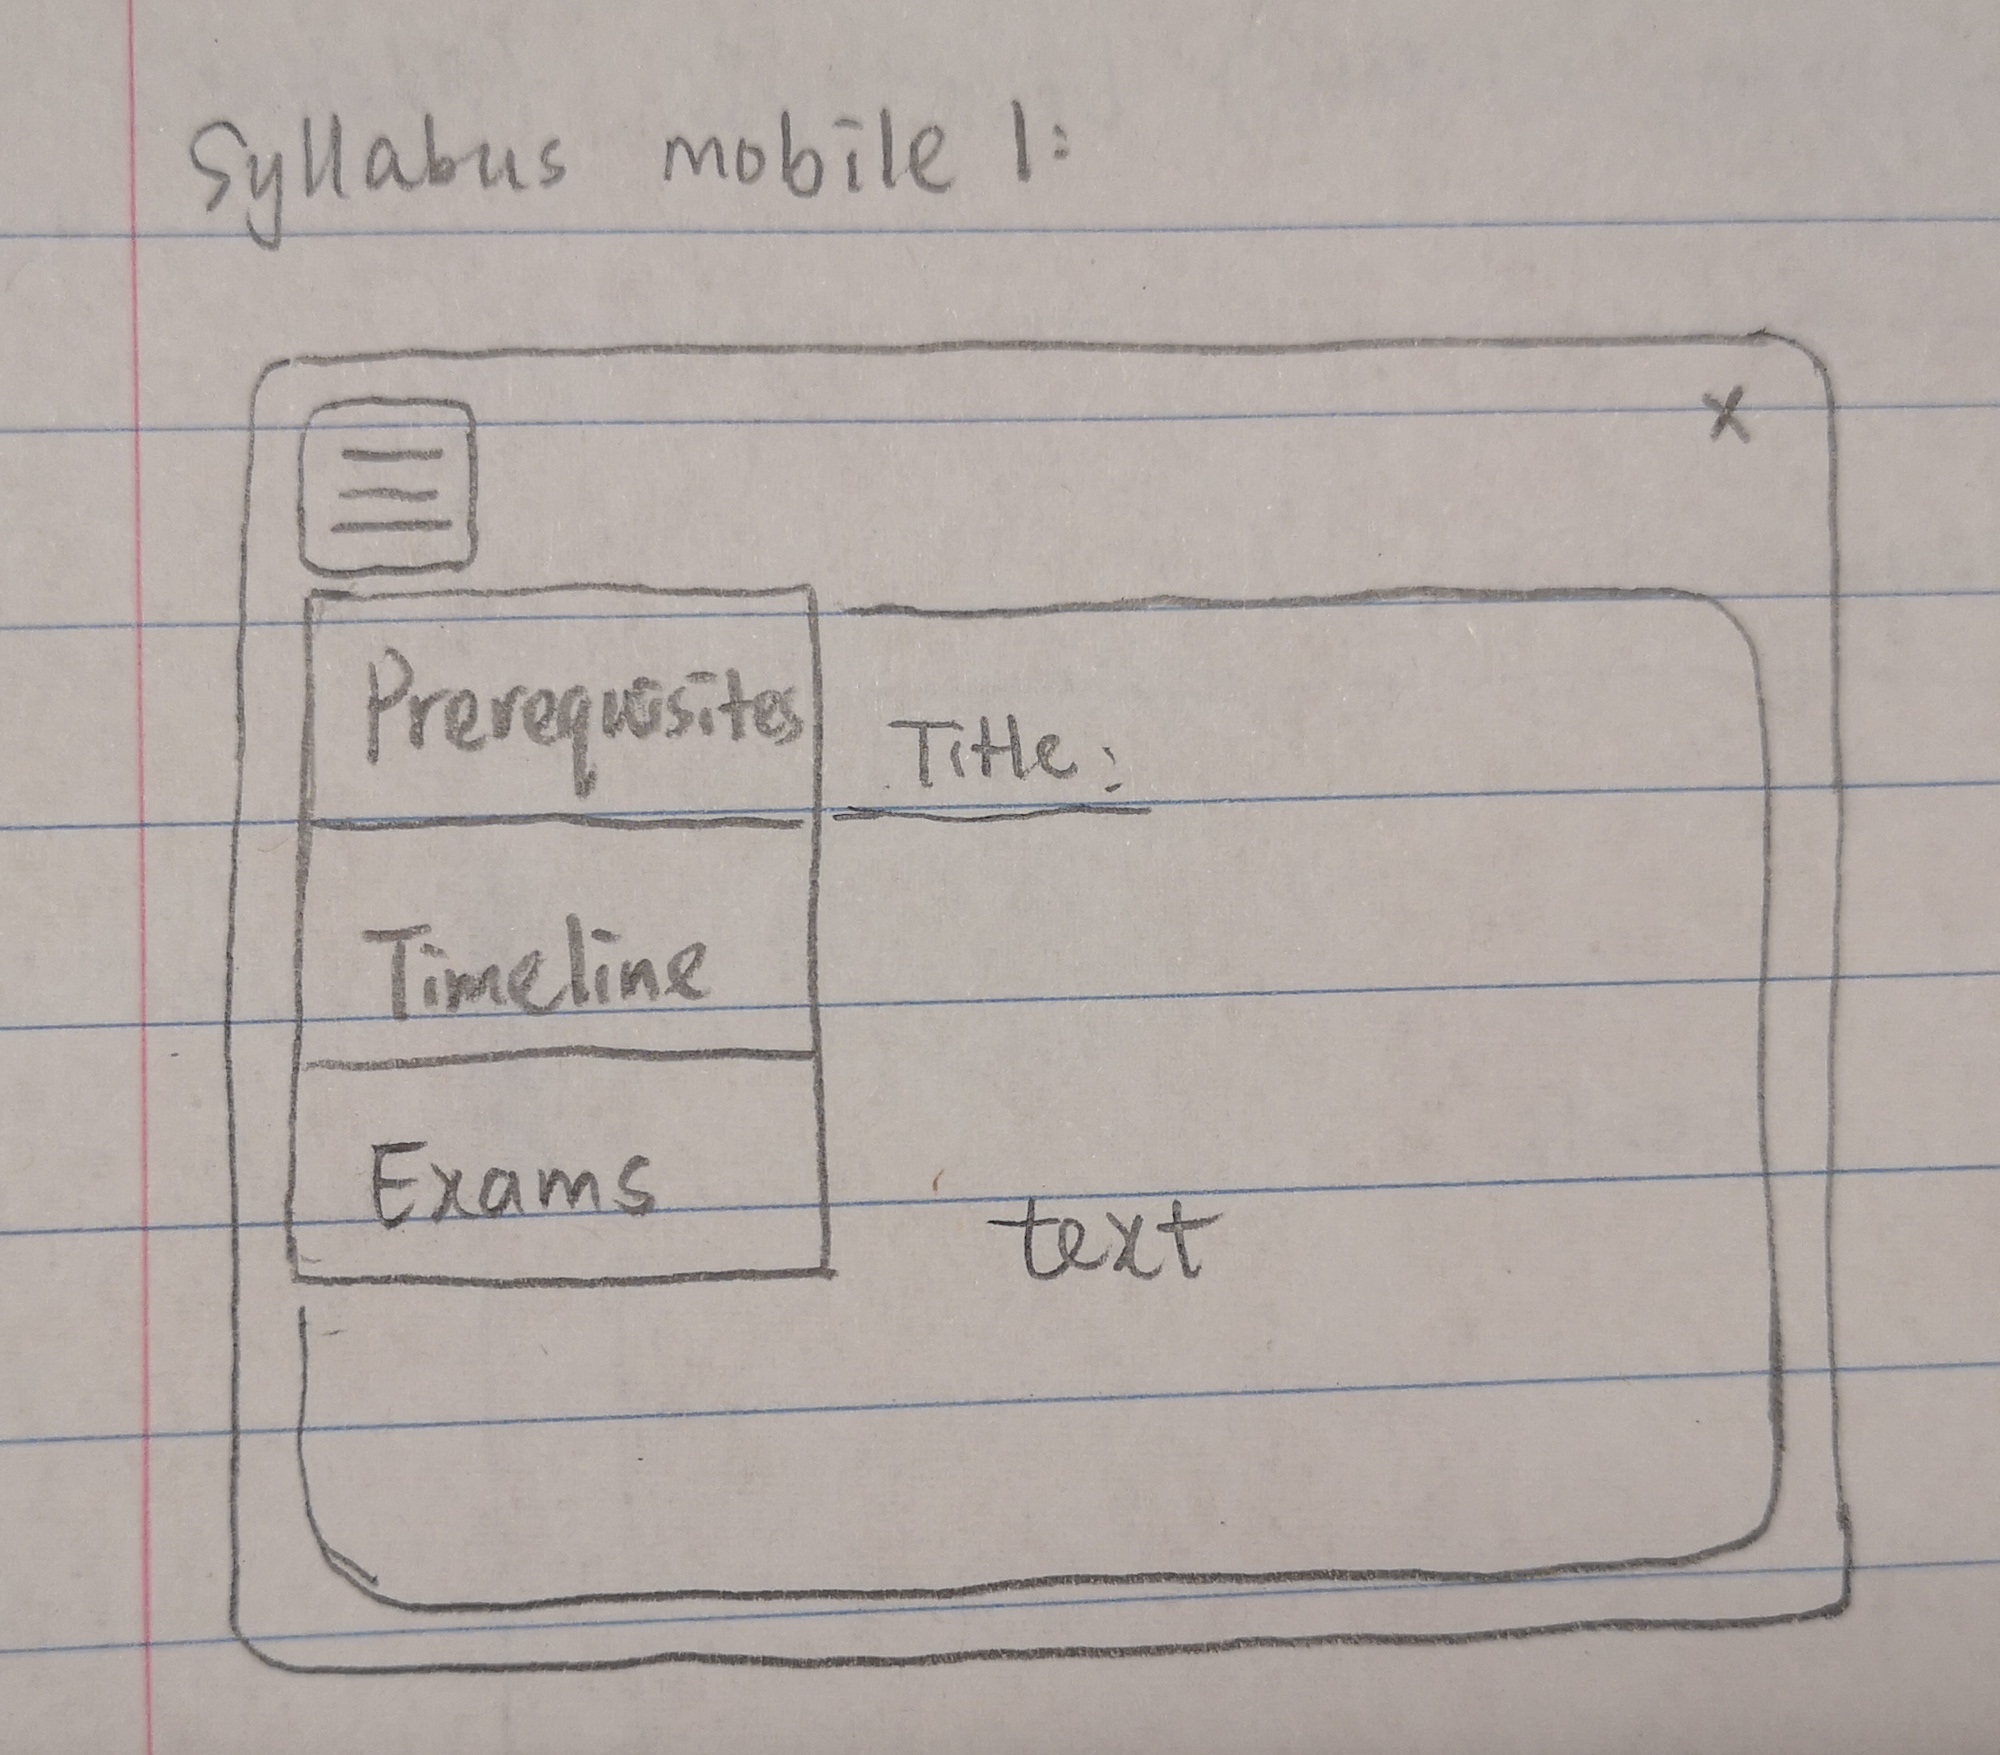 Syllabus mobile 1:
x
Prerequisites
Title:
Timeline
Exams
text